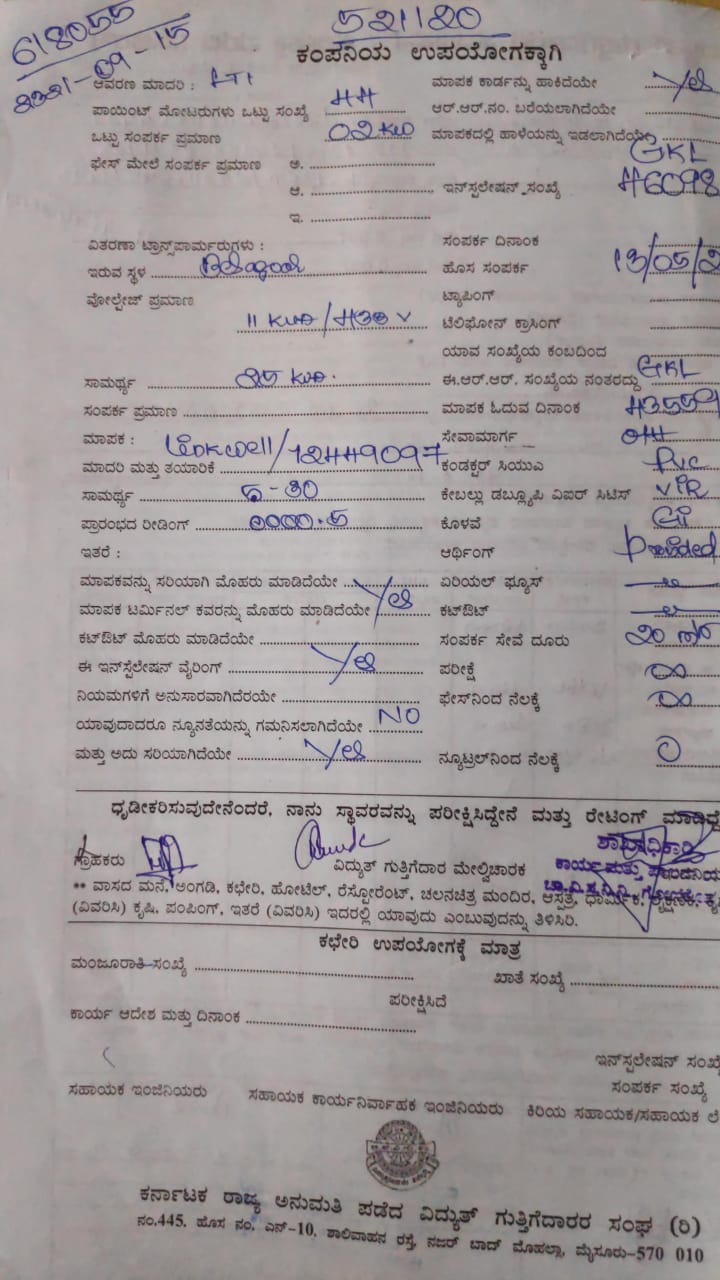 618055
521120
ಕಂಪನಿಯ ಉಪಯೋಗಕ್ಕಾಗಿ
ಆವರಣ ಮಾದರಿ : ಮಾಪಕ ಕಾರ್ಡನ್ನು ಹಾಕಿದೆಯೇ Yes
ಪಾಯಿಂಟ್ ಮೋಟರುಗಳು ಒಟ್ಟು ಸಂಖ್ಯೆ ಆರ್.ಆರ್.ನಂ. ಬರೆಯಲಾಗಿದೆಯೇ
ಒಟ್ಟು ಸಂಪರ್ಕ ಪ್ರಮಾಣ 02 KW ಮಾಪಕದಲ್ಲಿ ಹಾಳೆಯನ್ನು ಇಡಲಾಗಿದೆಯೇ
ಫೇಸ್ ಮೇಲೆ ಸಂಪರ್ಕ ಪ್ರಮಾಣ ಅ. GKL
ಆ. ಇನ್‌ಸ್ಟಲೇಷನ್ ಸಂಖ್ಯೆ 46098
ಇ.
ವಿತರಣಾ ಟ್ರಾನ್ಸ್‌ಪಾರ್ಮರುಗಳು : ಸಂಪರ್ಕ ದಿನಾಂಕ
ಇರುವ ಸ್ಥಳ ಹೊಸ ಸಂಪರ್ಕ 13/05/2
ವೋಲ್ಟೇಜ್ ಪ್ರಮಾಣ ಟ್ಯಾಪಿಂಗ್
ಟೆಲಿಫೋನ್ ಕ್ರಾಸಿಂಗ್
ಯಾವ ಸಂಖ್ಯೆಯ ಕಂಬದಿಂದ
ಸಾಮರ್ಥ್ಯ ಈ.ಆರ್.ಆರ್. ಸಂಖ್ಯೆಯ ನಂತರದ್ದು GKL
ಸಂಪರ್ಕ ಪ್ರಮಾಣ ಮಾಪಕ ಓದುವ ದಿನಾಂಕ 43559
ಮಾಪಕ : Linkwell/12449097 ಸೇವಾಮಾರ್ಗ OH
ಮಾದರಿ ಮತ್ತು ತಯಾರಿಕೆ ಕಂಡಕ್ಟರ್ ಸಿಯುಎ PVC
ಸಾಮರ್ಥ್ಯ 5-30 ಕೇಬಲ್ಲು ಡಬ್ಲ್ಯೂಪಿ ವಿಐರ್ ಸಿಟಿಸ್ VIR
ಪ್ರಾರಂಭದ ರೀಡಿಂಗ್ 0000.5 ಕೊಳವೆ GI
ಇತರೆ : ಆರ್ಥಿಂಗ್ provided
ಮಾಪಕವನ್ನು ಸರಿಯಾಗಿ ಮೊಹರು ಮಾಡಿದೆಯೇ ಏರಿಯಲ್ ಫ್ಯೂಸ್
ಮಾಪಕ ಟರ್ಮಿನಲ್ ಕವರನ್ನು ಮೊಹರು ಮಾಡಿದೆಯೇ Yes ಕಟ್‌ಔಟ್
ಕಟ್‌ಔಟ್ ಮೊಹರು ಮಾಡಿದೆಯೇ ಸಂಪರ್ಕ ಸೇವೆ ದೂರು
ಈ ಇನ್‌ಸ್ಟೆಲೇಷನ್ ವೈರಿಂಗ್ Yes ಪರೀಕ್ಷೆ ∞
ನಿಯಮಗಳಿಗೆ ಅನುಸಾರವಾಗಿದೆರಯೇ ಫೇಸ್‌ನಿಂದ ನೆಲಕ್ಕೆ ∞
ಯಾವುದಾದರೂ ನ್ಯೂನತೆಯನ್ನು ಗಮನಿಸಲಾಗಿದೆಯೇ NO
ಮತ್ತು ಅದು ಸರಿಯಾಗಿದೆಯೇ Yes ನ್ಯೂಟ್ರಲ್‌ನಿಂದ ನೆಲಕ್ಕೆ 0
ಧೃಡೀಕರಿಸುವುದೇನೆಂದರೆ, ನಾನು ಸ್ಥಾವರವನ್ನು ಪರೀಕ್ಷಿಸಿದ್ದೇನೆ ಮತ್ತು ರೇಟಿಂಗ್ ಮಾಡಿದ್ದೆ
ಶಾಖಾಧಿಕಾರಿ
ಗ್ರಾಹಕರು ವಿದ್ಯುತ್ ಗುತ್ತಿಗೆದಾರ ಮೇಲ್ವಿಚಾರಕ ಕಾರ್ಯ ಮತ್ತು
** ವಾಸದ ಮನೆ, ಅಂಗಡಿ, ಕಛೇರಿ, ಹೋಟೆಲ್, ರೆಸ್ಟೋರೆಂಟ್, ಚಲನಚಿತ್ರ ಮಂದಿರ, ಆಸ್ಪತ್ರೆ, ಧಾರ್ಮಿಕ, ಶೈಕ್ಷಣಿಕ,
(ವಿವರಿಸಿ) ಕೃಷಿ, ಪಂಪಿಂಗ್, ಇತರೆ (ವಿವರಿಸಿ) ಇದರಲ್ಲಿ ಯಾವುದು ಎಂಬುವುದನ್ನು ತಿಳಿಸಿರಿ.
ಕಛೇರಿ ಉಪಯೋಗಕ್ಕೆ ಮಾತ್ರ
ಮಂಜೂರಾತಿ ಸಂಖ್ಯೆ ಖಾತೆ ಸಂಖ್ಯೆ
ಪರೀಕ್ಷಿಸಿದೆ
ಕಾರ್ಯ ಆದೇಶ ಮತ್ತು ದಿನಾಂಕ
ಇನ್‌ಸ್ಪಲೇಷನ್ ಸಂಖ್ಯೆ
ಸಂಪರ್ಕ ಸಂಖ್ಯೆ
ಸಹಾಯಕ ಇಂಜಿನಿಯರು ಸಹಾಯಕ ಕಾರ್ಯನಿರ್ವಾಹಕ ಇಂಜಿನಿಯರು ಕಿರಿಯ ಸಹಾಯಕ/ಸಹಾಯಕ ಲೆ
ಕರ್ನಾಟಕ ರಾಜ್ಯ ಅನುಮತಿ ಪಡೆದ ವಿದ್ಯುತ್ ಗುತ್ತಿಗೆದಾರರ ಸಂಘ (ರಿ)
ನಂ.445, ಹೊಸ ನಂ. ಎನ್-10, ಶಾಲಿವಾಹನ ರಸ್ತೆ, ನಜರ್ ಬಾದ್ ಮೊಹಲ್ಲಾ, ಮೈಸೂರು-570 010